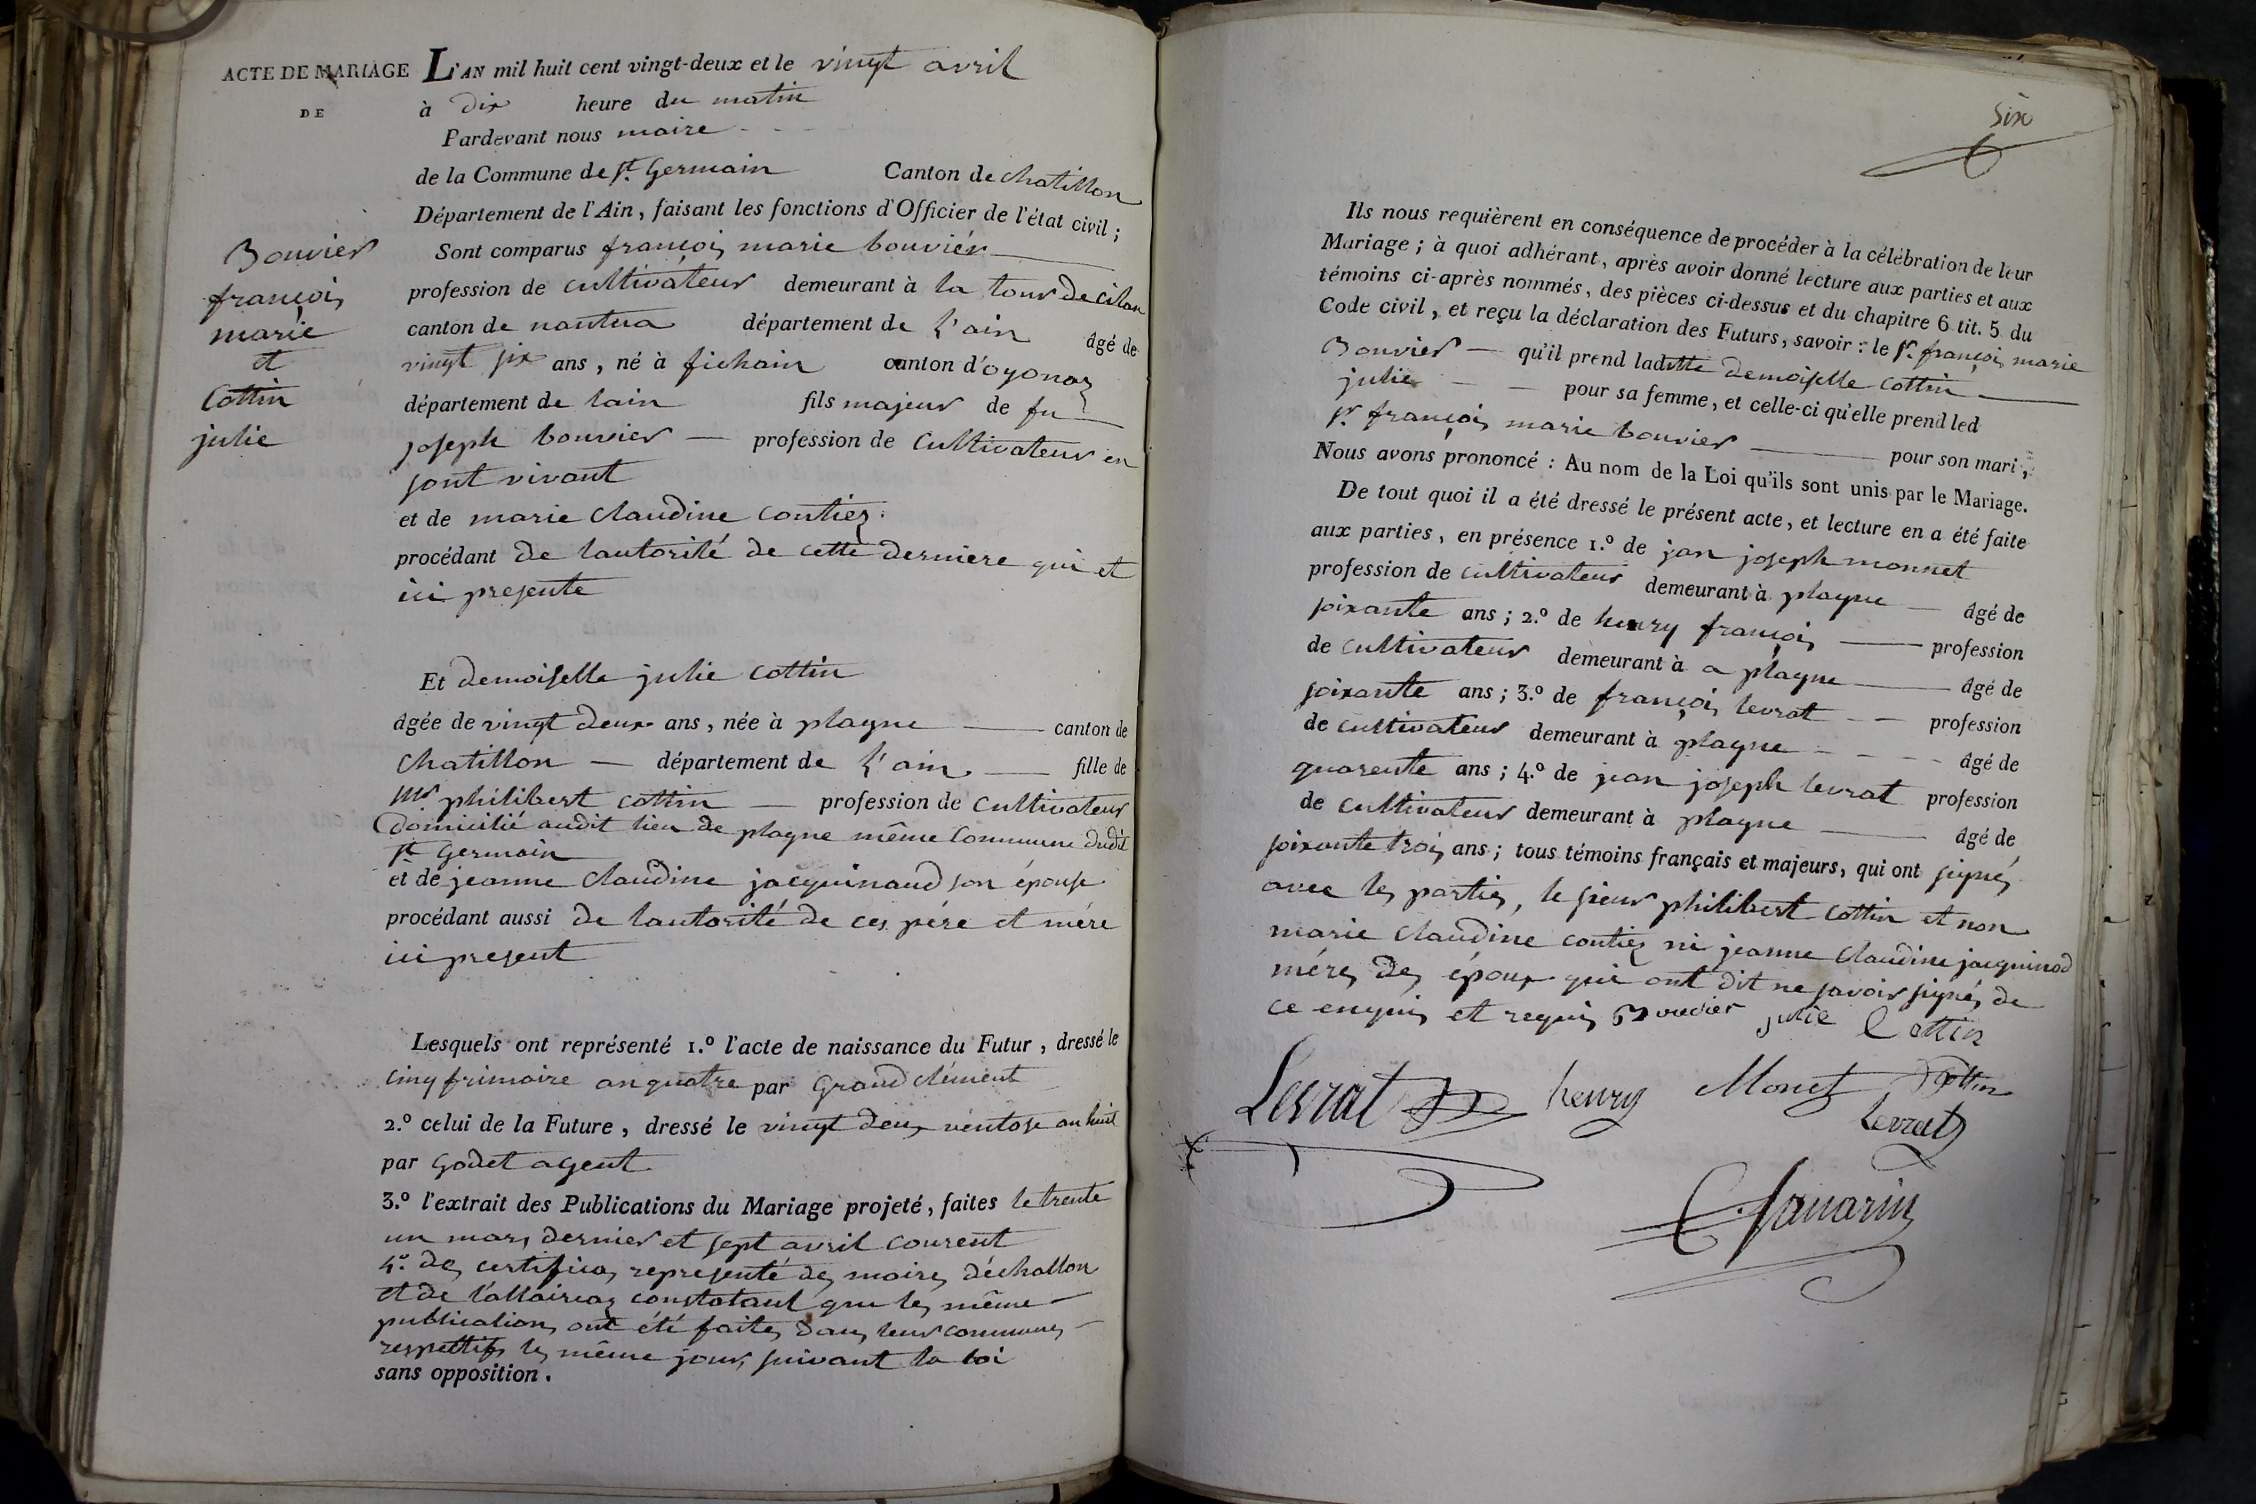 ACTE DE MARIAGE
DE
Bouvier
françois
marie
et
Cottin
julie
L'AN mil huit cent vingt-deux et le vingt avril
à dix heure du matin
Pardevant nous maire
de la Commune de St. Germain Canton de chatillon
Département de l'Ain, faisant les fonctions d'Officier de l'état civil ;
Sont comparus françois marie bouviér
profession de cultivateur demeurant à la tour de cilan
canton de nantua département de l'ain âgé de
vingt six ans, né à fichain canton d'oyonaz
département de lain fils majeur de fu
joseph bouvier — profession de Cultivateur en
sont vivant
et de marie claudine contiéz
procédant de lautorité de cette derniere qui et
ici presente
Et demoiselle julie cottin
âgée de vingt deux ans, née à plagne — canton de
Chatillon — département de l'ain — fille de
Mr. philibert cottin — profession de cultivateur
domicilié audit lieu de plagne même commune dudit
st Germain
et de jeanne claudine jacquinaud son épouse
procédant aussi de lautorité de ces pére et mére
ici present
Lesquels ont représenté 1.º l'acte de naissance du Futur, dressé le
cinq frimaire an quatre par Grand clément
2.º celui de la Future, dressé le vingt deux ventose an huit
par Godet agent
3.º l'extrait des Publications du Mariage projeté, faites le trente
un mars dernier et sept avril courent
4.º des certificas representé des maires déchallon
et de lallairiaz constatant que les même
publications ont été faites dans leur communes
respettifs les même jours suivant la loi
sans opposition.
Six
6
Ils nous requièrent en conséquence de procéder à la célébration de leur
Mariage ; à quoi adhérant, après avoir donné lecture aux parties et aux
témoins ci-après nommés, des pièces ci-dessus et du chapitre 6 tit. 5 du
Code civil, et reçu la déclaration des Futurs, savoir : le Sr. françois marie
Bouvier — qu'il prend laditte demoiselle cottin
julie — pour sa femme, et celle-ci qu'elle prend led
Sr. françois marie bouvier — pour son mari ;
Nous avons prononcé : Au nom de la Loi qu'ils sont unis par le Mariage.
De tout quoi il a été dressé le présent acte, et lecture en a été faite
aux parties, en présence 1.º de jan joseph monnet
profession de cultivateur demeurant à plagne — âgé de
soixante ans ; 2.º de henry françois — profession
de cultivateur demeurant à a plagne — âgé de
soixante ans ; 3.º de françois levrat — profession
de cultivateur demeurant à plagne — âgé de
quarente ans ; 4.º de jean joseph levrat profession
de cultivateur demeurant à plagne — âgé de
soixante trois ans ; tous témoins français et majeurs, qui ont signés
avec les parties, le sieur philibert cottin et non
marie claudine contiéz ni jeanne claudine jacquinod
mérés des époux qui ont dit ne savoir signés de
ce enquis et requis Bouvier julie Cottin
Levrat henry Monet Cottin
Levrat